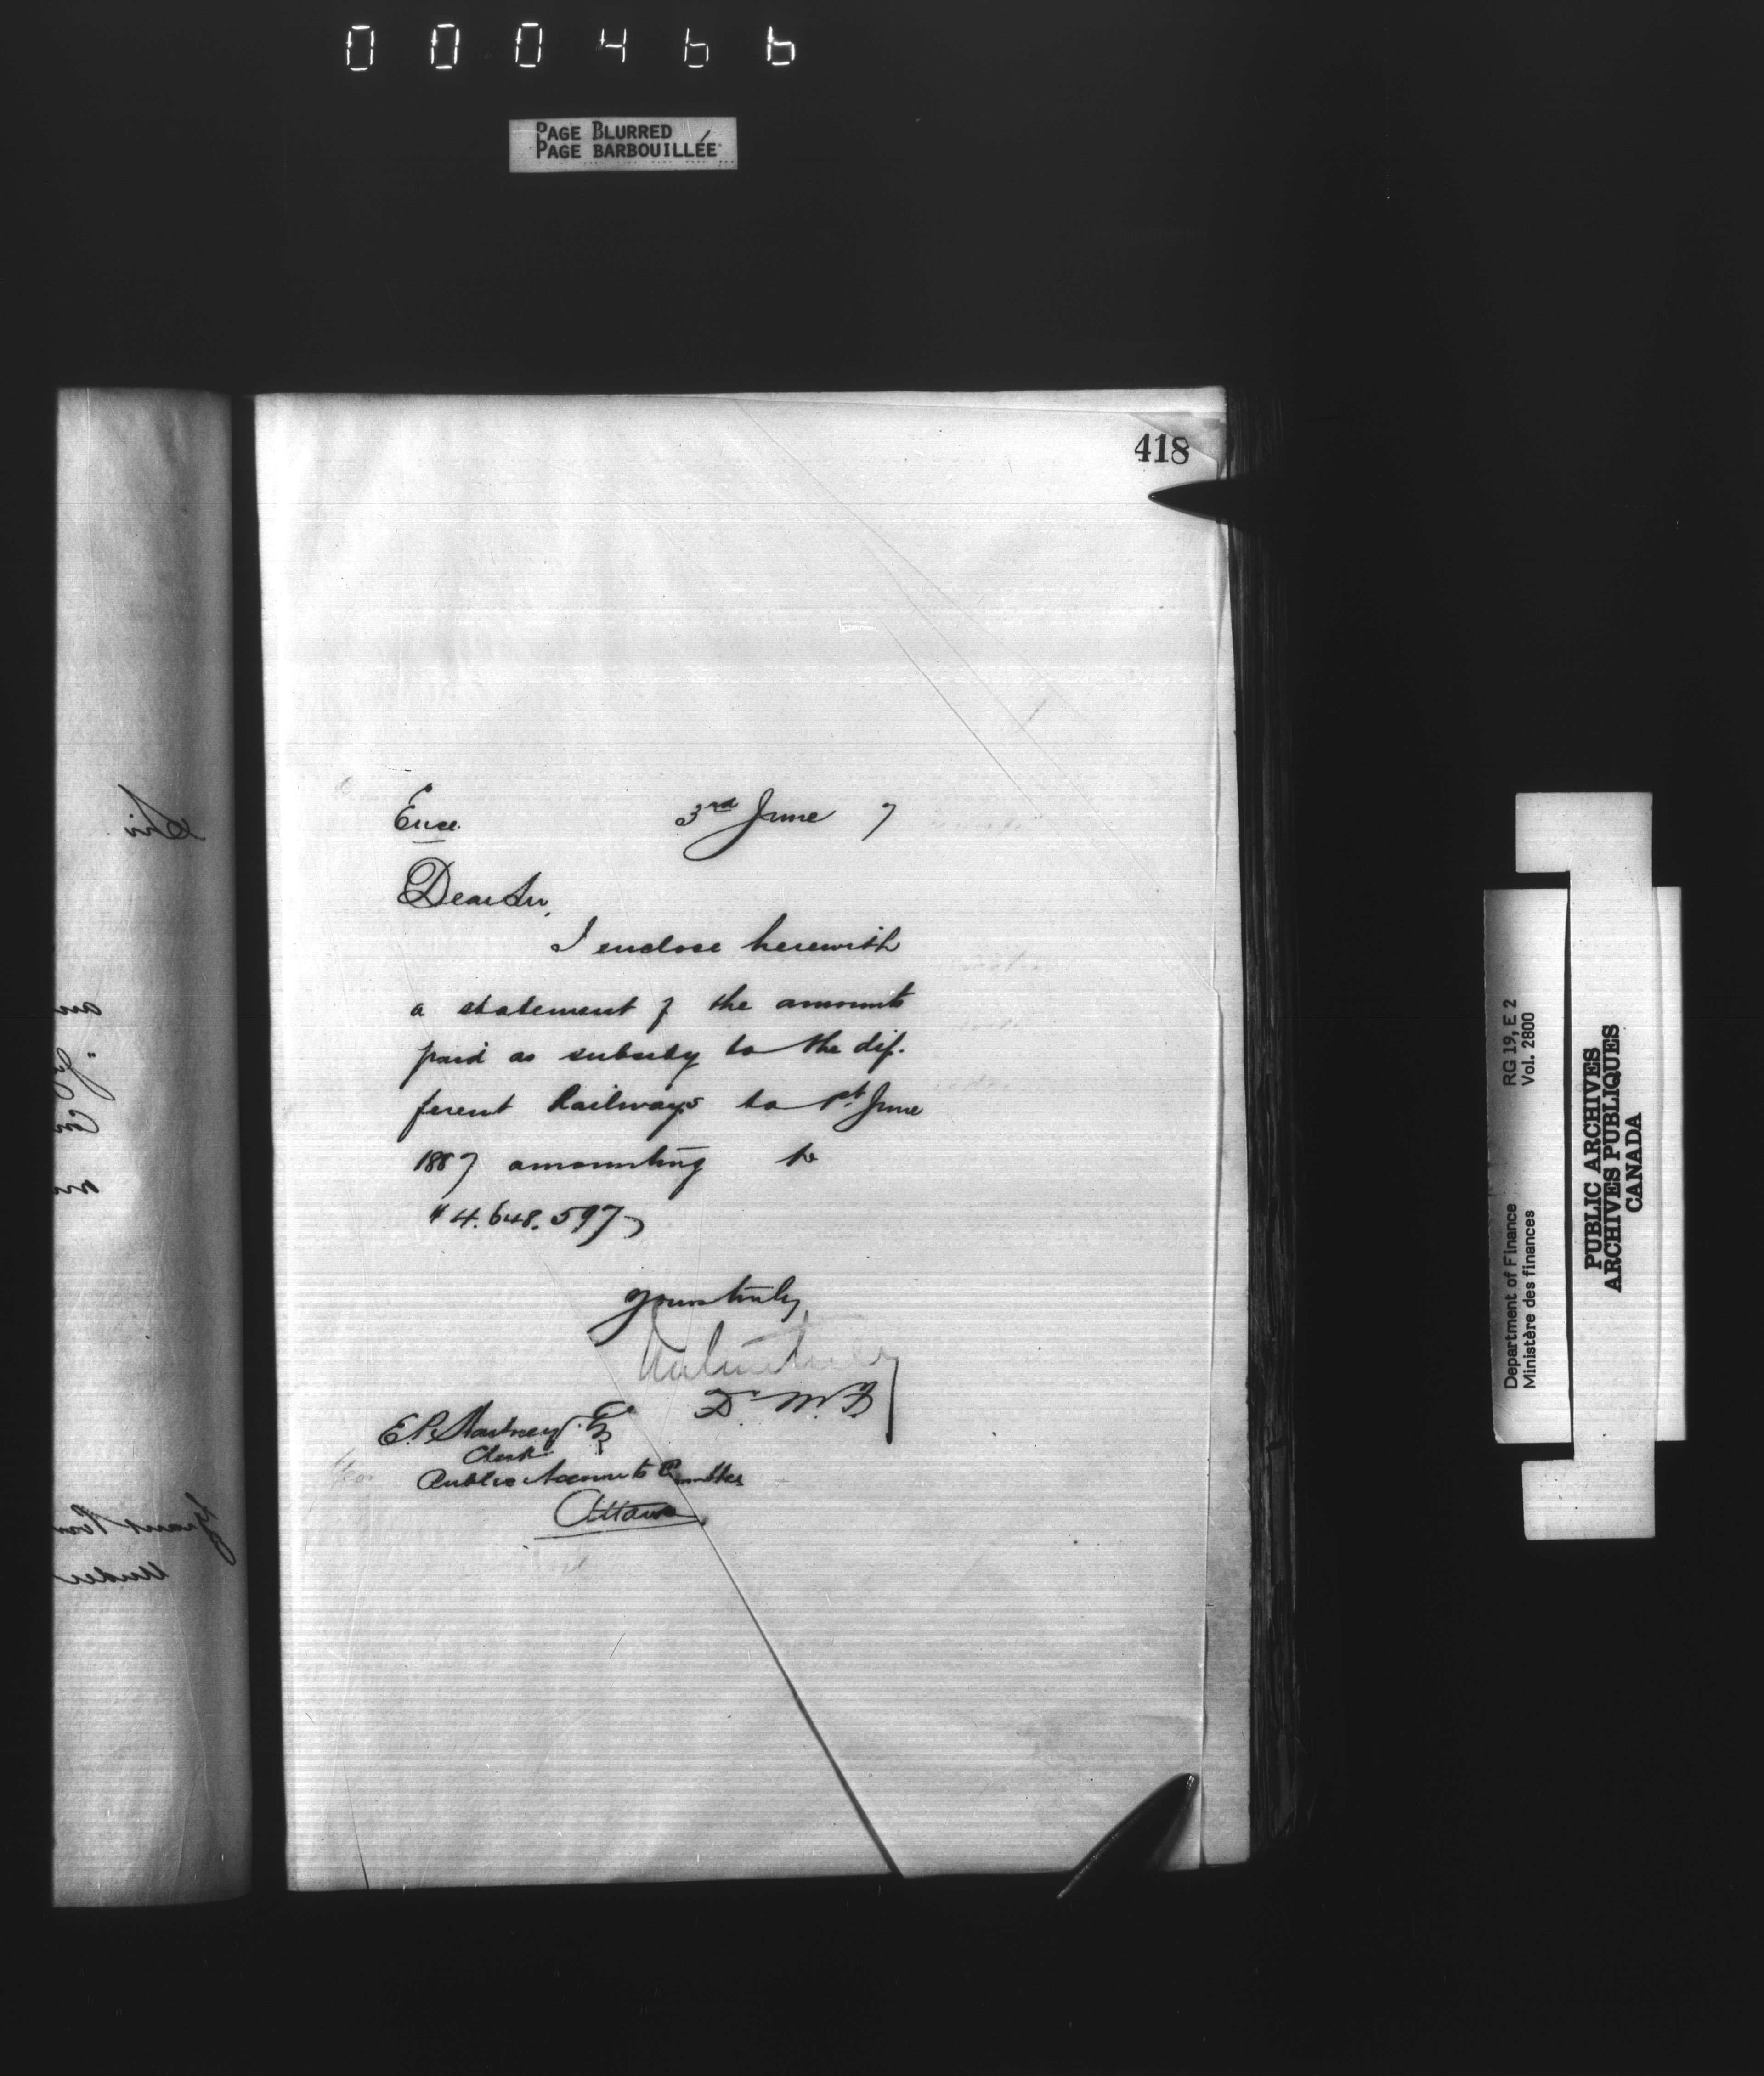 000466
PAGE BLURRED
PAGE BARBOUILLÉE
418
Sir
Encl. 3rd June 7
Dear Sir,
I enclose herewith
a statement of the amounts
paid as subsidy to the dif-
ferent Railways to 1st June
1887 amounting to
$4.648.597
Yours truly
D.M.F.
E.P. Hartney Esq
Clerk
Public Accounts Committee
Ottawa
Department of Finance RG 19, E 2
Ministère des finances Vol. 2800
PUBLIC ARCHIVES
ARCHIVES PUBLIQUES
CANADA